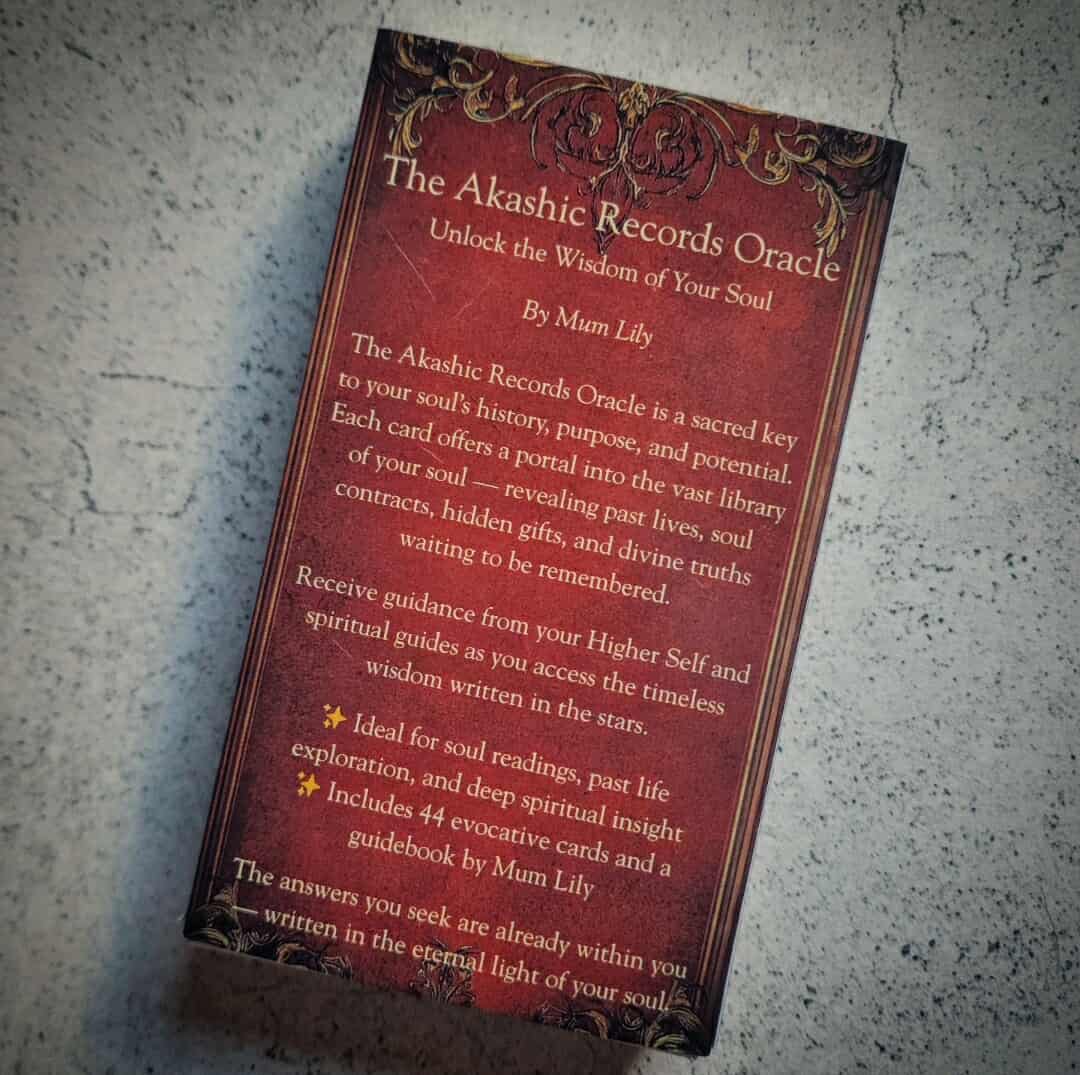 The Akashic Records Oracle
Unlock the Wisdom of Your Soul
By Mum Lily
The Akashic Records Oracle is a sacred key
to your soul's history, purpose, and potential.
Each card offers a portal into the vast library
of your soul — revealing past lives, soul
contracts, hidden gifts, and divine truths
waiting to be remembered.
Receive guidance from your Higher Self and
spiritual guides as you access the timeless
wisdom written in the stars.
✨ Ideal for soul readings, past life
exploration, and deep spiritual insight
✨ Includes 44 evocative cards and a
guidebook by Mum Lily
The answers you seek are already within you
— written in the eternal light of your soul.